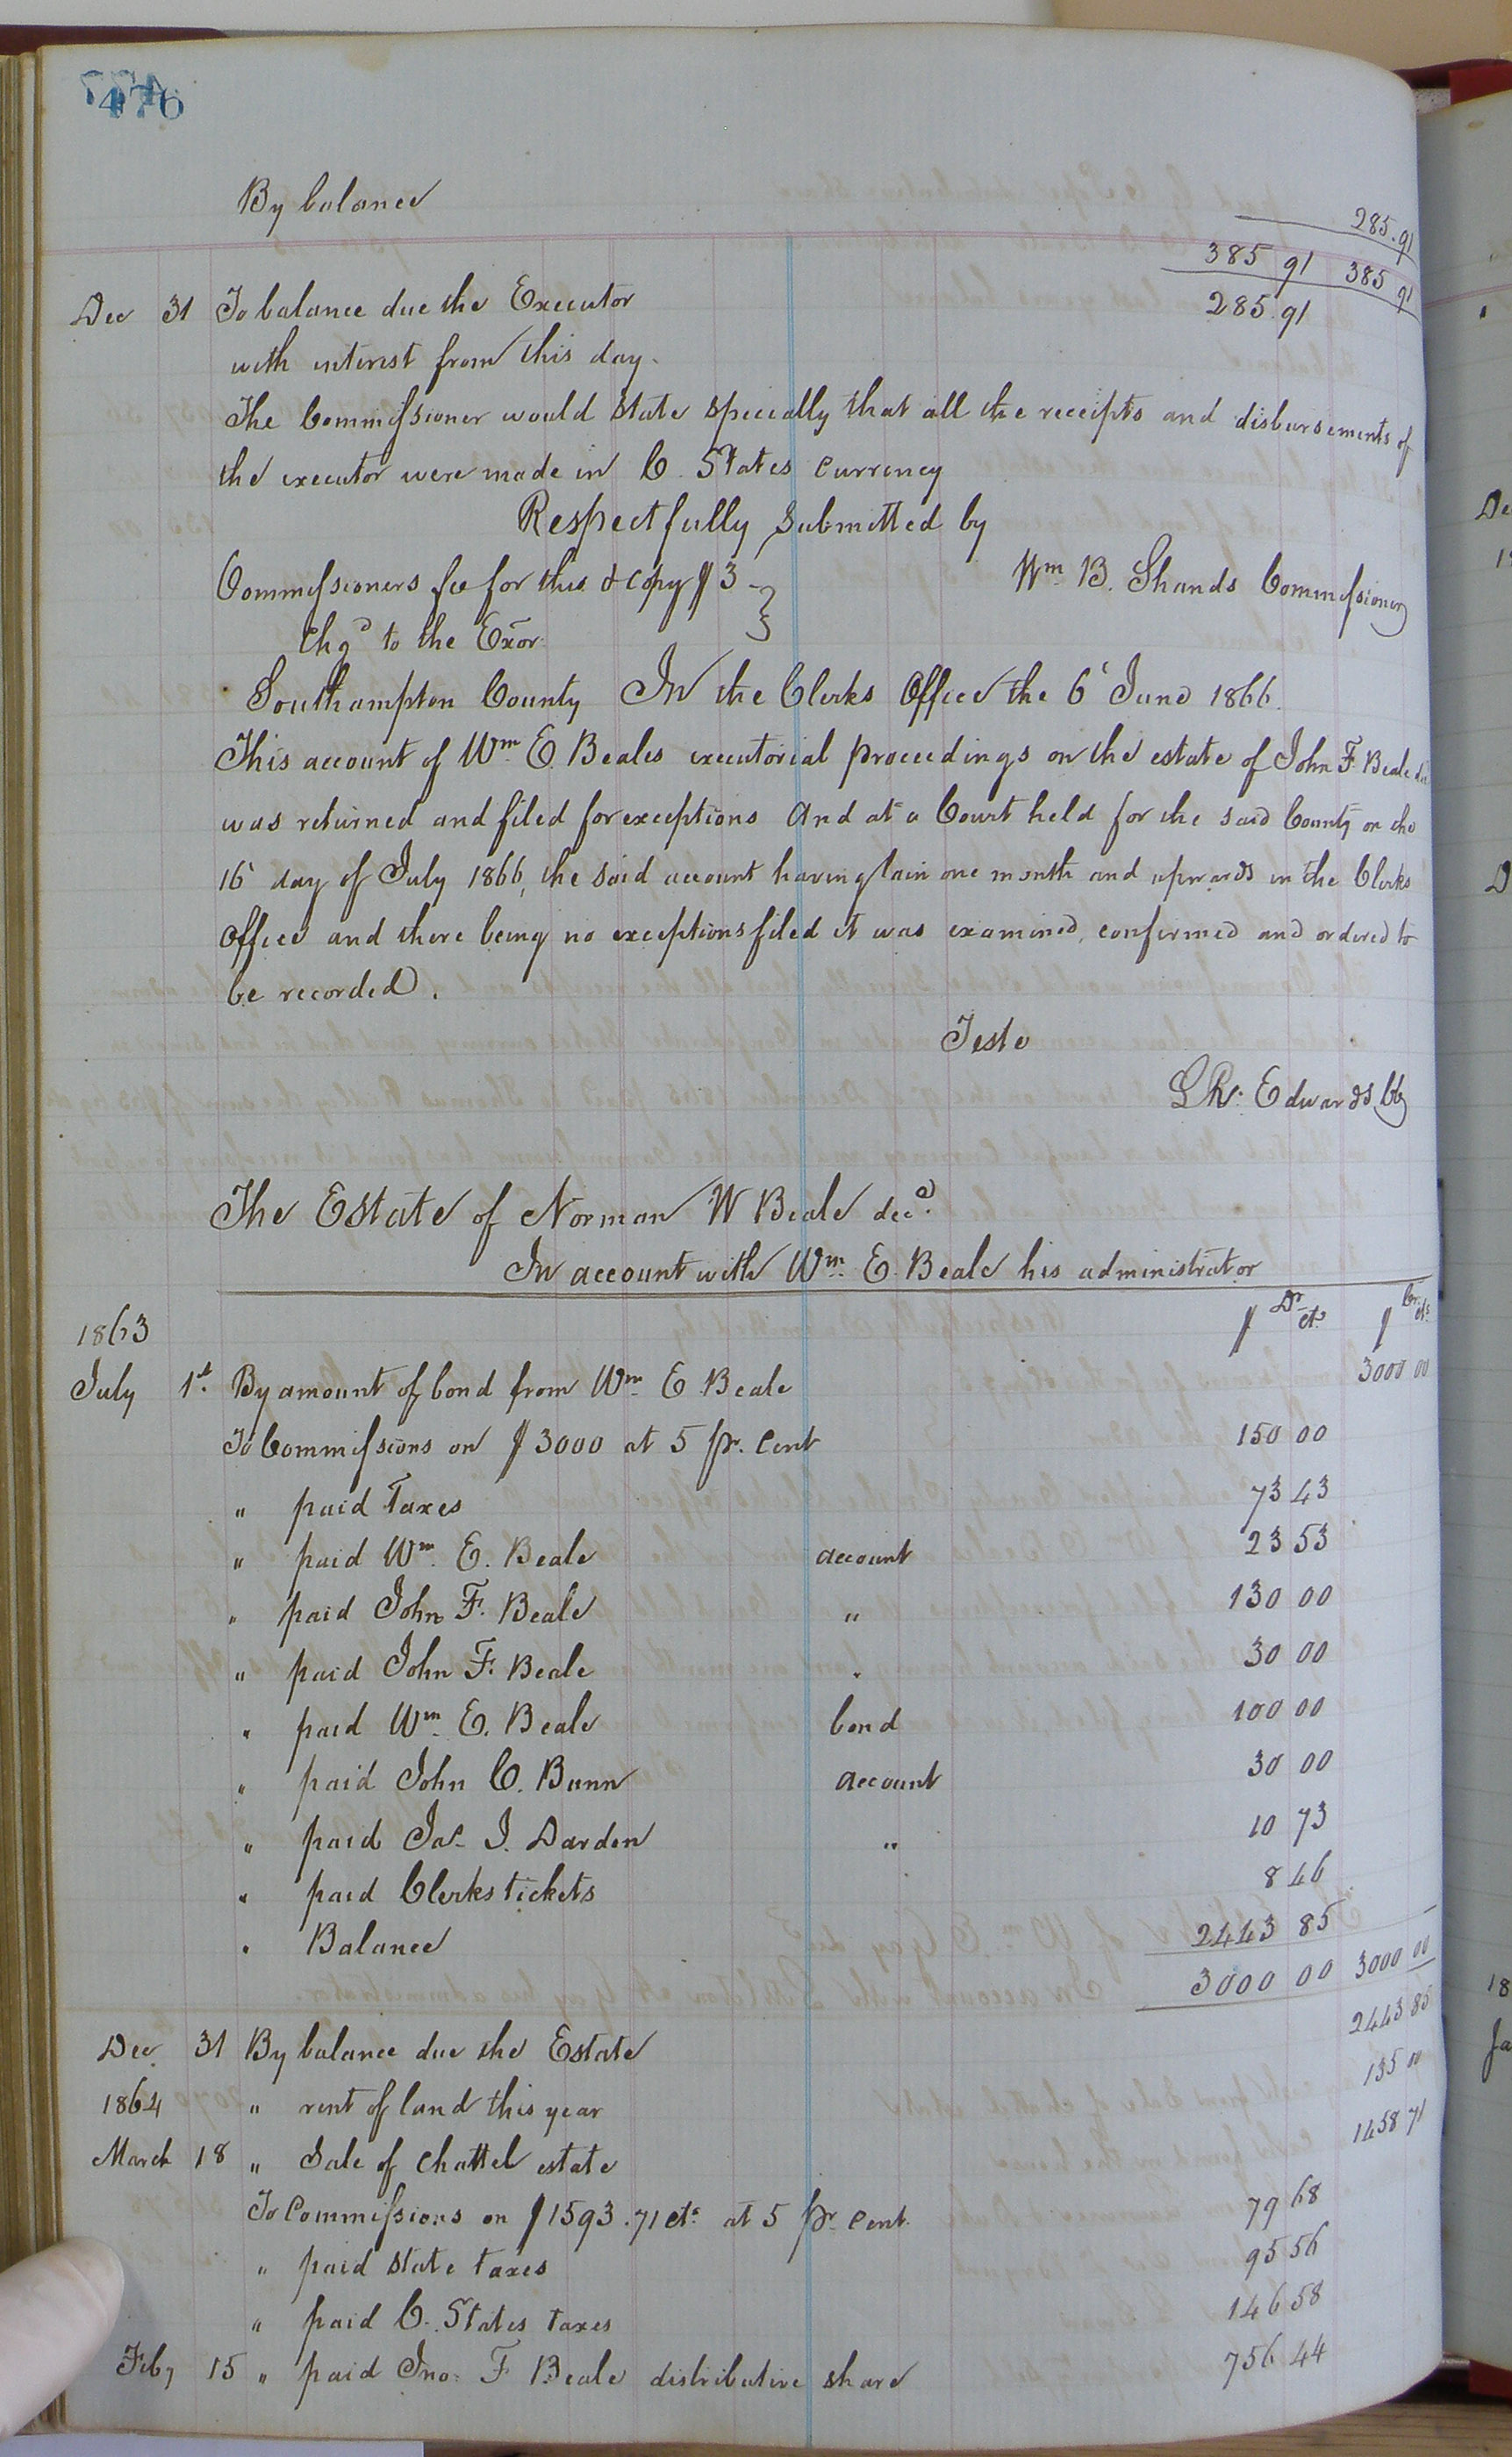 476
By balance 285.91
385 91 385 91
Dec 31 To balance due the Executor 285.91
with interest from this day.
The Commissioner would state specially that all the receipts and disbursements of
the executor were made in C. States currency
Respectfully submitted by
Commissioners fee for this & copy $3 Wm B. Shands Commissioner
Chgd to the Exor.
Southampton County In the Clerks Office the 6' June 1866.
This account of Wm E. Beales executorial proceedings on the estate of John F. Beale dec
was returned and filed for exceptions And at a Court held for the said County on the
16' day of July 1866, the said account having lain one month and upwards in the Clerks
Office and there being no exceptions filed it was examined, confirmed and ordered to
be recorded.
Teste
L R. Edwards Clk
The Estate of Norman W Beale decd.
In account with Wm. E. Beale his administrator
1863 $ Dr cts $ Cr cts
July 1st. By amount of bond from Wm E Beale 3000 00
To Commissions on $3000 at 5 pr. Cent 150 00
" paid Taxes 73 43
" paid Wm. E. Beale account 23 53
" paid John F. Beale " 130 00
" paid John F. Beale " 30 00
" paid Wm. E. Beale bond 100 00
" paid John C. Bunn account 30 00
" paid Jas. J. Darden " 10 73
" paid Clerks tickets 8 46
" Balance 2443 85
3000 00 3000 00
Dec. 31 By balance due the Estate 2443 85
1864 " rent of land this year 135 00
March 18 " Sale of chattel estate 1458 71
To Commissions on $1593.71 cts at 5 pr cent. 79 68
" paid state taxes 95 56
" paid C. States taxes 146 58
Feby 15 " paid Jno. F Beale distributive share 756 44